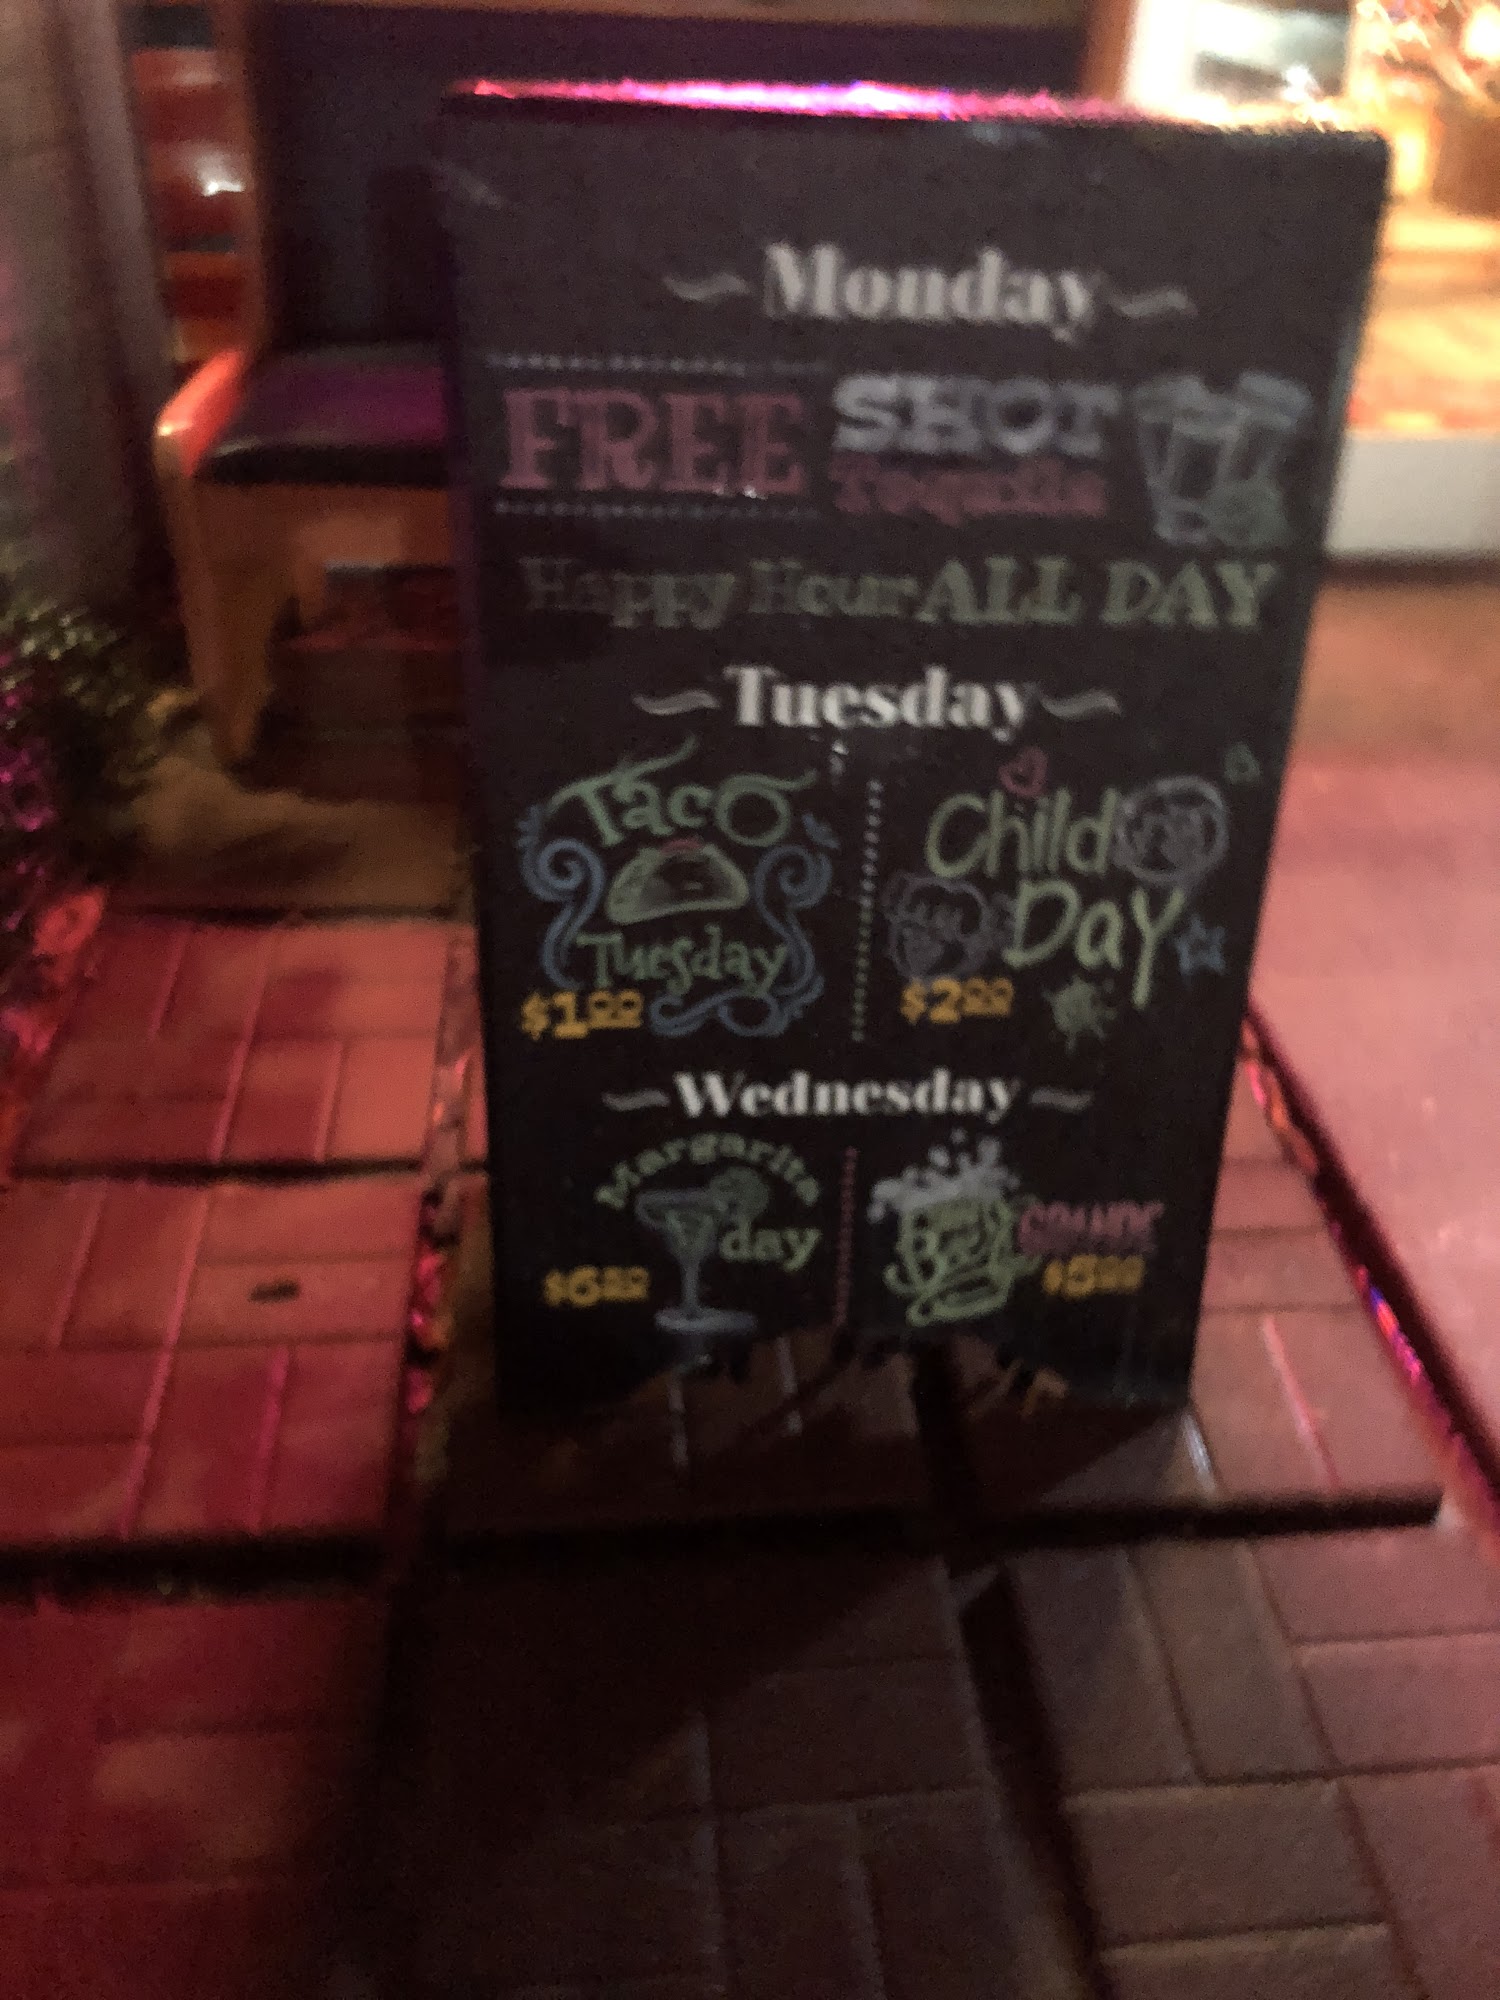 Monday
FREE SHOT
Tequila
Happy Hour ALL DAY
Tuesday
Taco
Tuesday
$1.00
Child
Day
$2.00
Wednesday
Margarita
day
$6.00
Beer GRANDE
$5.00